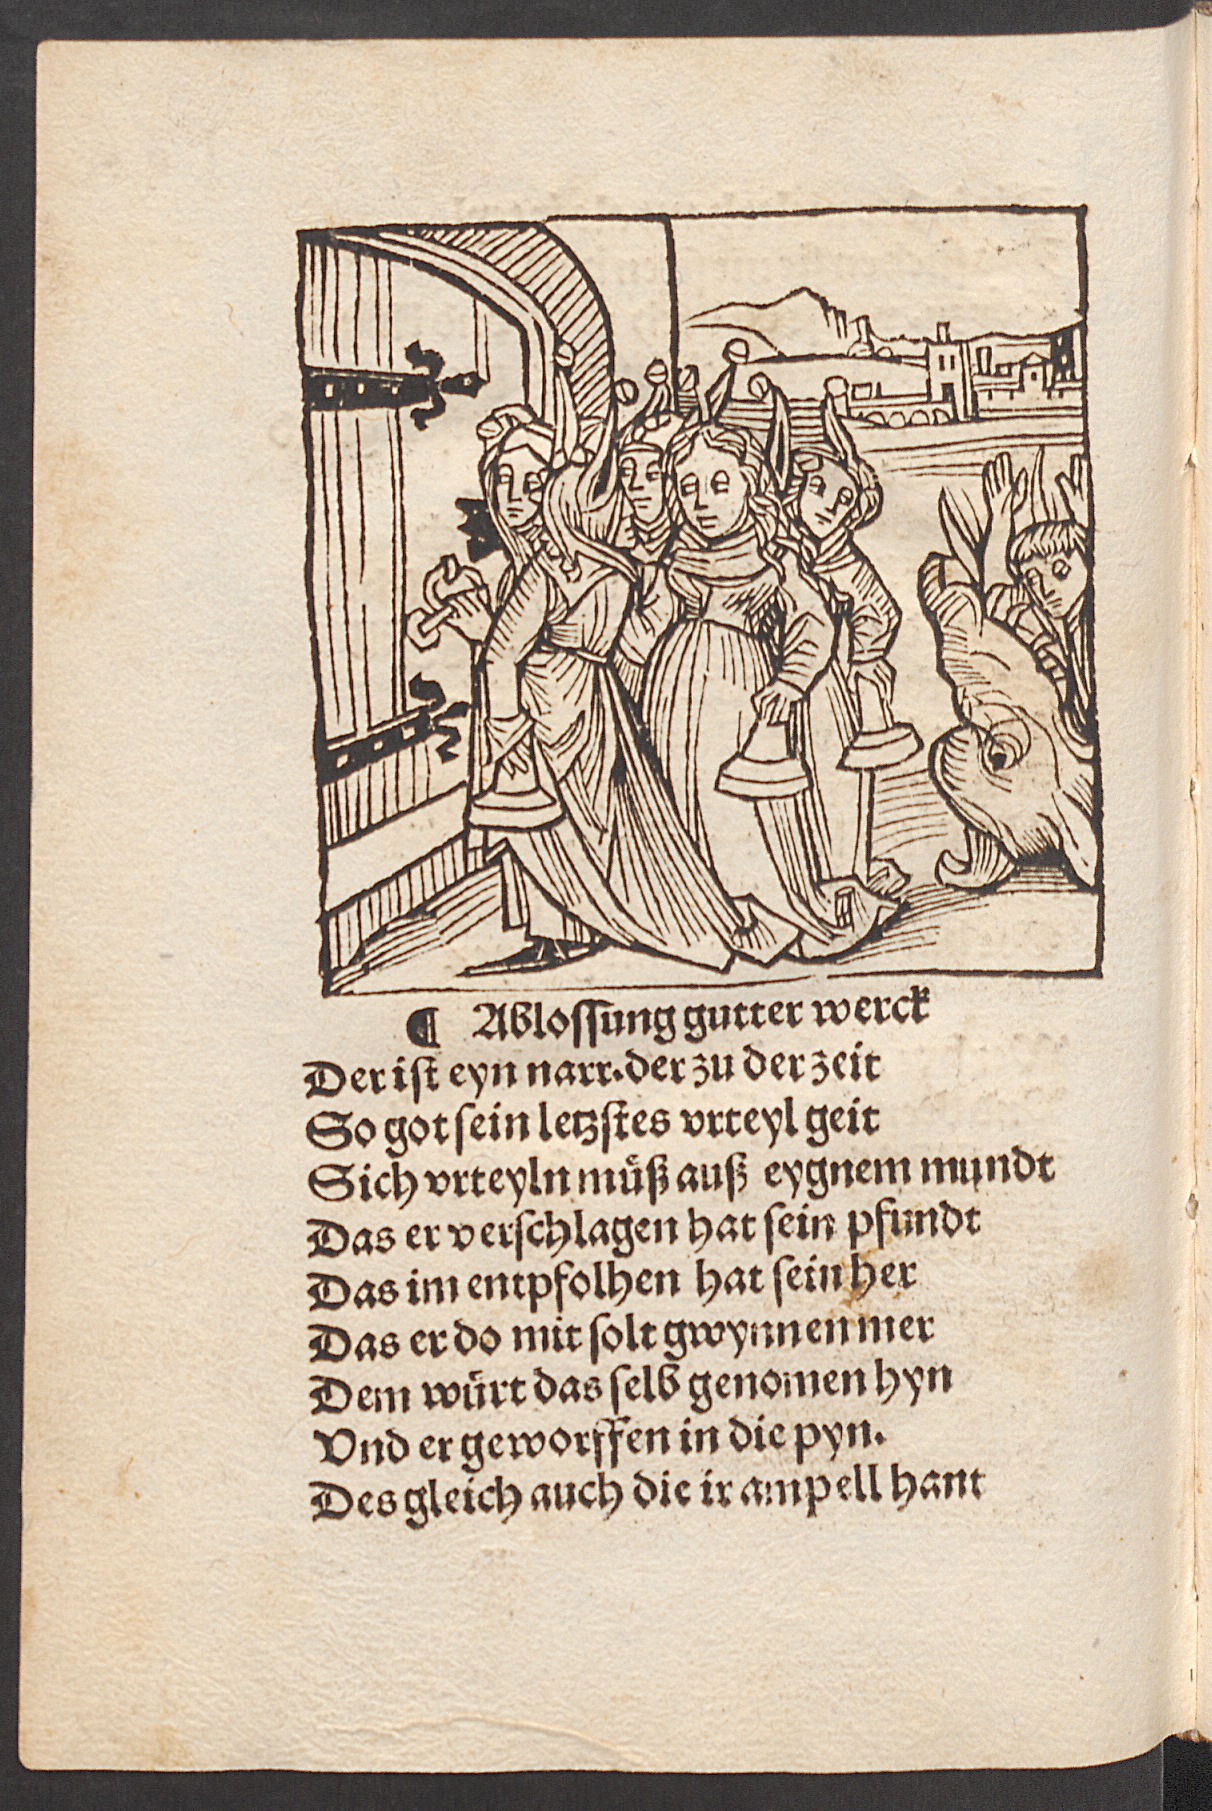 ¶ Ablossung gutter werck
Der ist eyn narr. der zu der zeit
So got sein letzstes vrteyl geit
Sich vrteyln muͤß auß eygnem mundt
Das er verschlagen hat sein pfundt
Das im entpfolhen hat sein her
Das er do mit solt gwynnen mer
Dem wuͤrt das selb genomen hyn
Vnd er geworffen in die pyn.
Des gleich auch die ir ampell hant